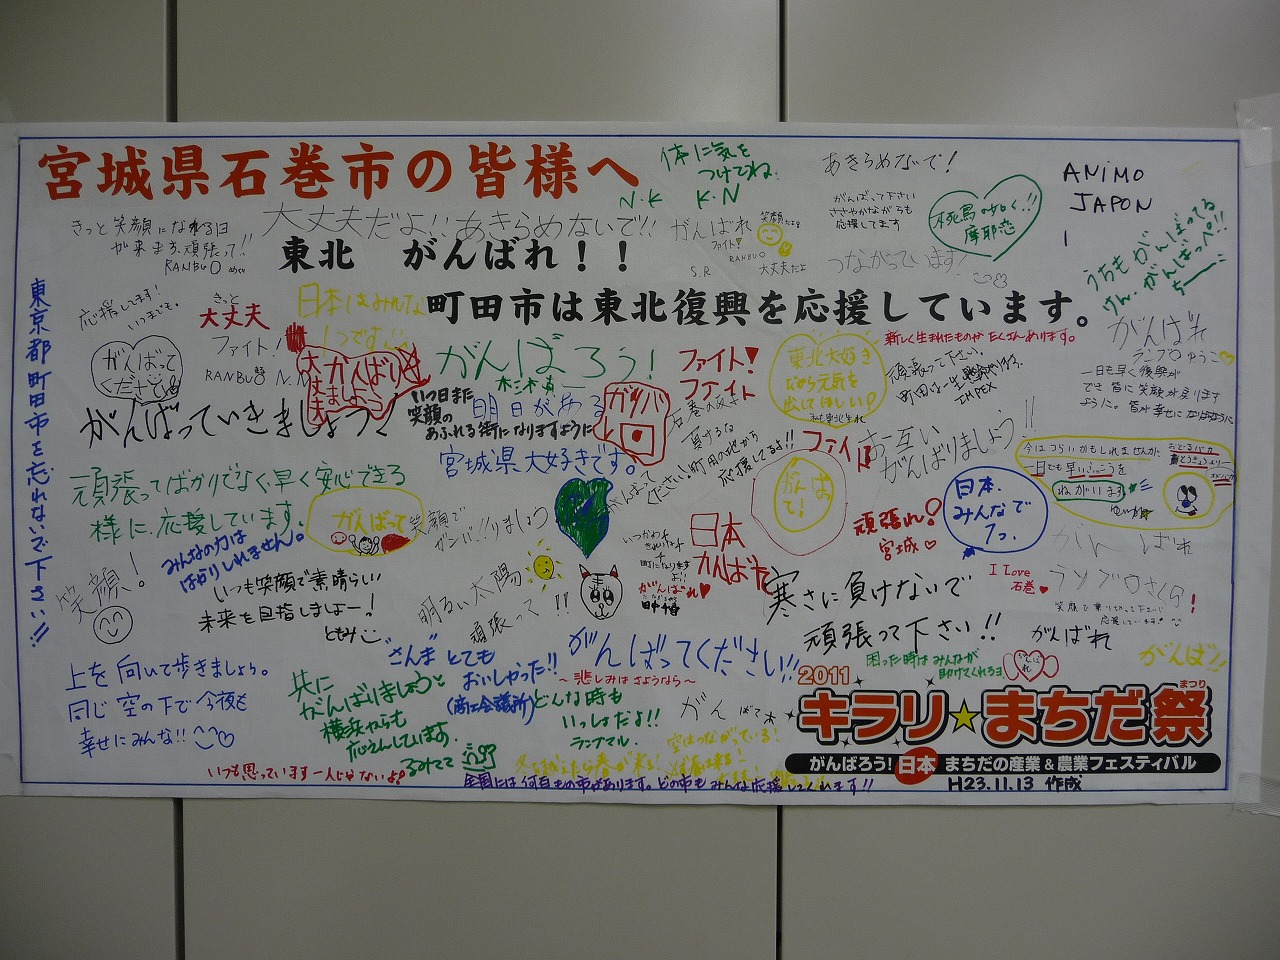 宮城県石巻市の皆様へ
体に気を
つけてね
N.K K.N
あきらめないで!
ANIMO
JAPON
きっと笑顔になれる日
が来ます。頑張って!!
RANBUO
大丈夫だよ!!あきらめないで!!
がんばれ
ファイト!
RANBUO
S.R
笑顔だよ
大丈夫だよ
がんばって下さい
ささやかながらも
応援してます
不死鳥の如く!!
摩耶恋
つながっています!
うちもがんばってる
けん.がんばっぺ!!
東北 がんばれ!!
町田市は東北復興を応援しています。
東京都町田市を忘れないで下さい!!
応援してます!
いつまでも。
きっと
大丈夫
ファイト!
RANBU
N.N
日本はみんな
1つです
がんばって
ください
がんばり
大丈夫
がんばろう!
ファイト!
ファイト
東北大好き
だから元気を
出してほしい!
新しく生まれたものがたくさんあります。
頑張って下さい。
がんばれ
ランブロゆうこ
一日も早く復興が
でき皆に笑顔が戻ります
ように。皆が幸せになりますように
がんばっていきましょう
いつの日また
笑顔の
あふれる街になりますように
明日がある
ガンバ
宮城県大好きです。
負けるな
町田の地から
応援してるよ!!
ファイト
お互い
がんばりましょう!!
今はつらいかもしれませんが
一日でも早いふっこうを
ねがいます
頑張ってばかりでなく、早く安心できる
様に、応援しています。
がんばって
笑顔で
がんばって!
頑張れ!
宮城
日本.
みんなで
1つ.
みんなの力は
はかりしれません。
日本
がんばれ
がんばれ
笑顔!
いつも笑顔で素晴らしい
未来を目指しましょー!
ともみ
明るい太陽
頑張って!!
がんばれ
寒さに負けないで
頑張って下さい!!
I Love
石巻
がんばれ
がんば!!
上を向いて歩きましょう。
同じ空の下で今夜も
幸せにみんな!!
"さんま"とても
おいしかった!!
(商工会議所)
がんばってください!!
~悲しみはさようなら~
共に
がんばりましょう
横浜からも
応えんしています.
るみてて
どんな時も
いっしょだよ!!
困った時はみんなが
助けてくれるヨ
がんばれ
いつも思っています一人じゃないよ
空はつながっている!
全国には何百もの市があります。どの市もみんな応援してくれます!!
2011
キラリ☆まちだ祭
まつり
がんばろう!日本 まちだの産業&農業フェスティバル
H23.11.13 作成